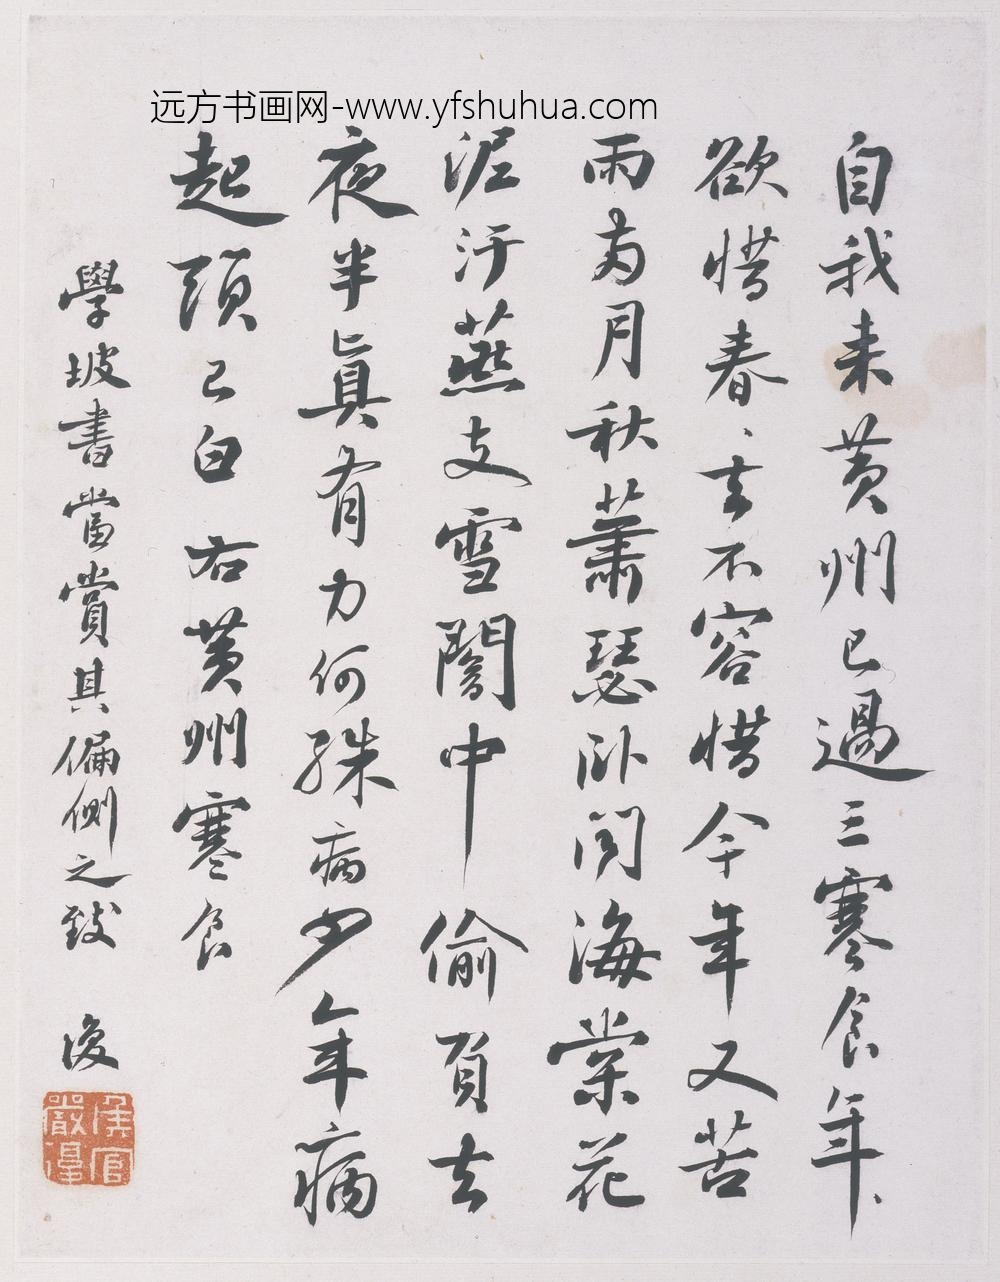 远方书画网-www.yfshuhua.com
自我来黄州已過三寒食年、
欲惜春、去不容惜今年又苦
雨两月秋蕭瑟卧闻海棠花
泥汙燕支雪闇中偷負去
夜半真有力何殊病少年病
起頭已白右黄州寒食
學坡書當賞其偏側之致
復
侯官嚴復